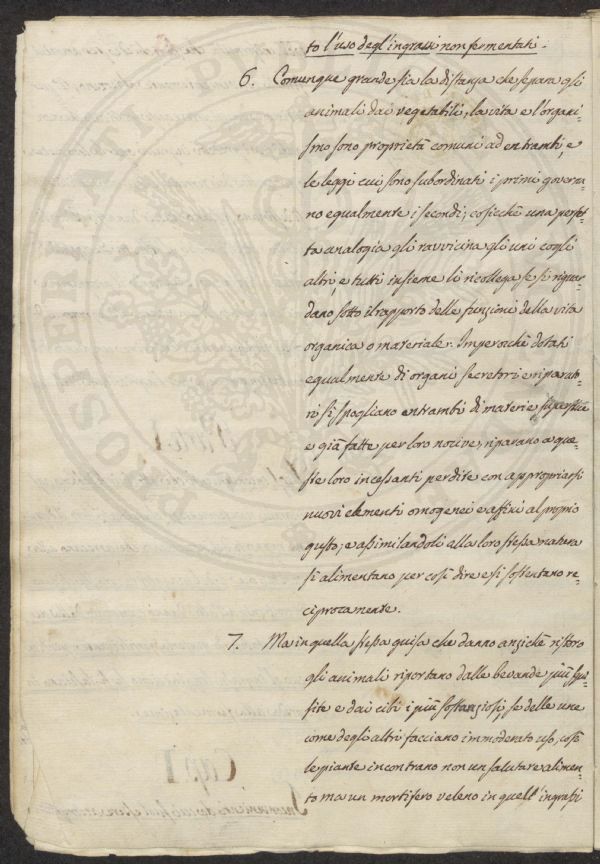 to l'uso degl'ingrassi non fermentati.
6. Comunque grande sia la distanza che separa gli
animali dai vegetabili, la vita e l'organi-
smo sono proprietà comuni ad entrambi, e
le leggi cui sono subordinati i primi governa-
no egualmente i secondi; cosicchè una perfet-
ta analogia gli ravvicina gli uni cogli
altri, e tutti insieme li ricollega se si riguar-
dano sotto il rapporto delle funzioni della vita
organica o materiale. Imperocchè dotati
egualmente di organi secretori e riparato-
ri si spogliano entrambi di materie superflue
e già fatte per loro nocive, riparano a que-
ste loro incessanti perdite con appropriarsi
nuovi elementi omogenei e affini al proprio
gusto; e assimilandoli alla loro stessa natura
si alimentano per così dire e si sostentano re-
ciprocamente.
7. Ma in quella stessa guisa che danno anzichè ristoro
gli animali riportano dalle bevande più squi-
site e dai cibi i più sostanziosi, se delle une
come degli altri facciano immoderato uso, così
le piante incontrano non un salutare alimen-
to ma un mortifero veleno in quell'ingrassi
Cap. I